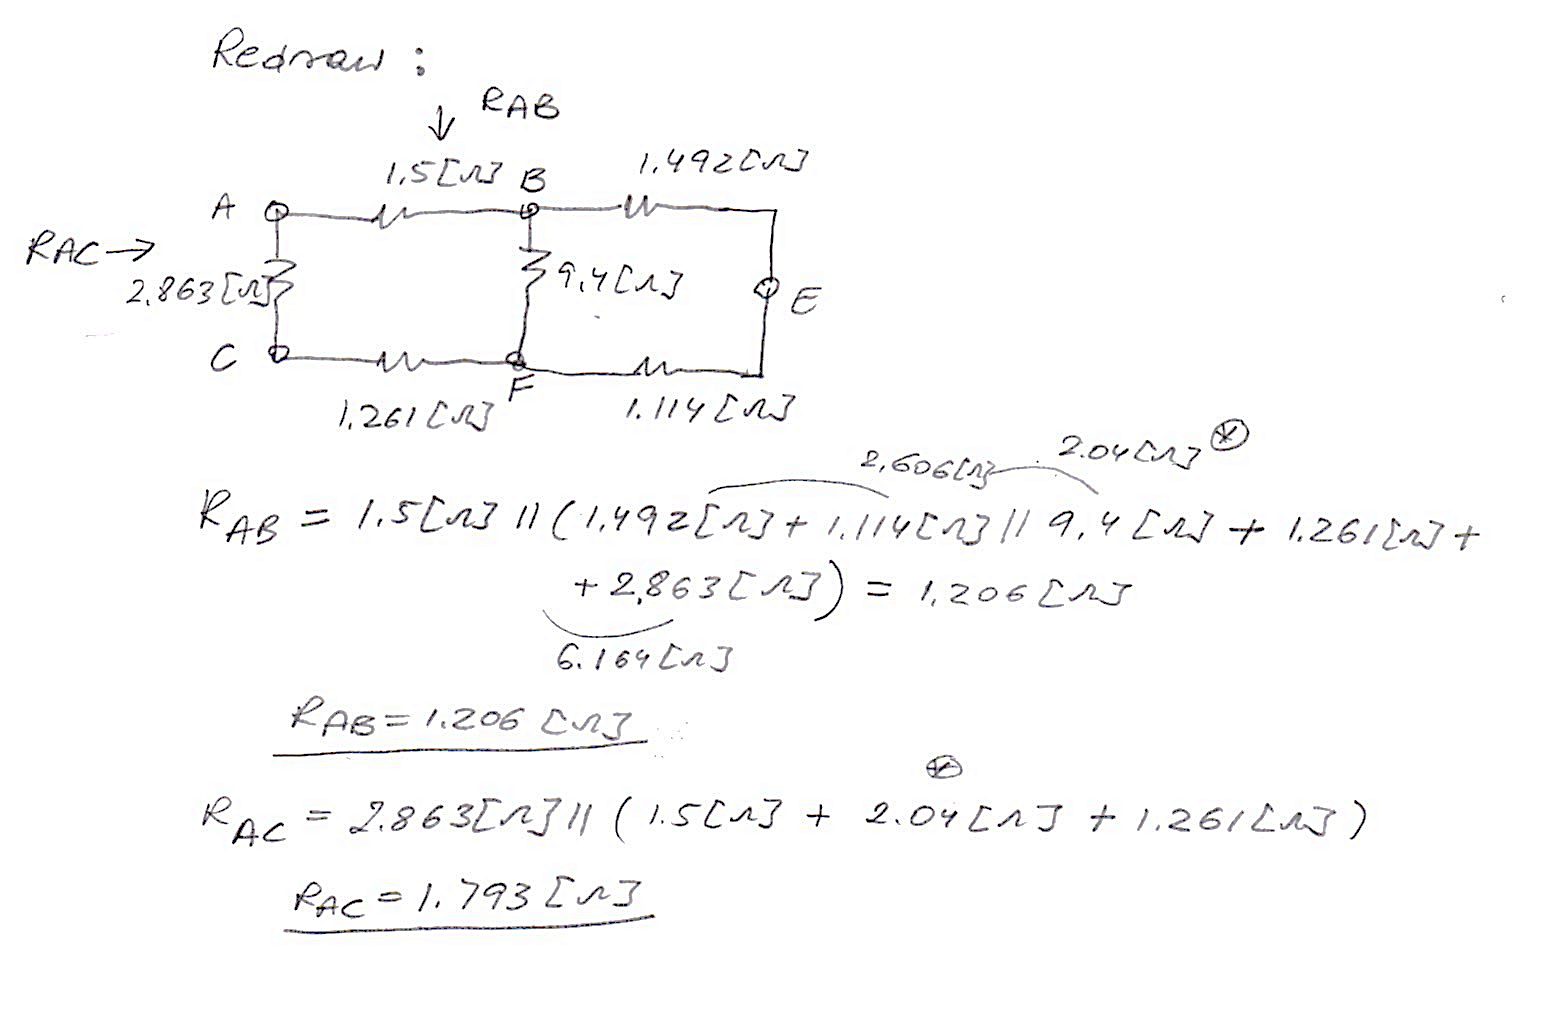 Redraw :
↓ RAB
1.5[Ω] B 1.492[Ω]
A
RAC→
2.863[Ω] 9.4[Ω] E
C
F
1.261[Ω] 1.114[Ω]
2.606[Ω] 2.04[Ω] ⊛
RAB = 1.5[Ω] || (1.492[Ω] + 1.114[Ω] || 9.4[Ω] + 1.261[Ω] +
+ 2.863[Ω]) = 1.206[Ω]
6.164[Ω]
RAB = 1.206 [Ω]
⊛
RAC = 2.863[Ω] || (1.5[Ω] + 2.04[Ω] + 1.261[Ω])
RAC = 1.793 [Ω]